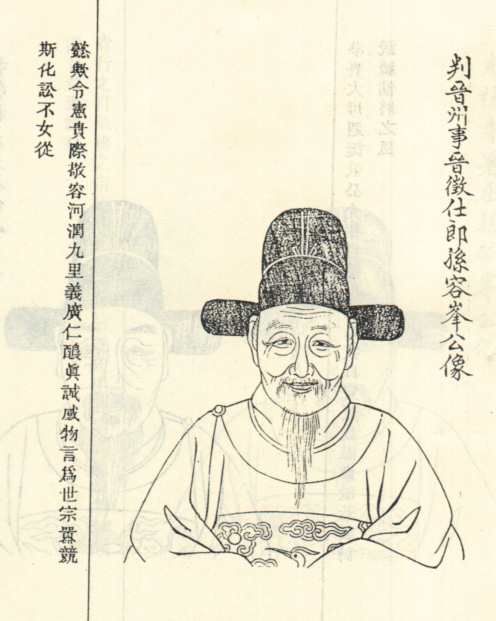 判晉州事晉徵仕郎孫容峯公像
懿歟令憲貴際敬容河潤九里義廣仁醲眞誠感物言爲世宗嚚競
斯化訟不女從